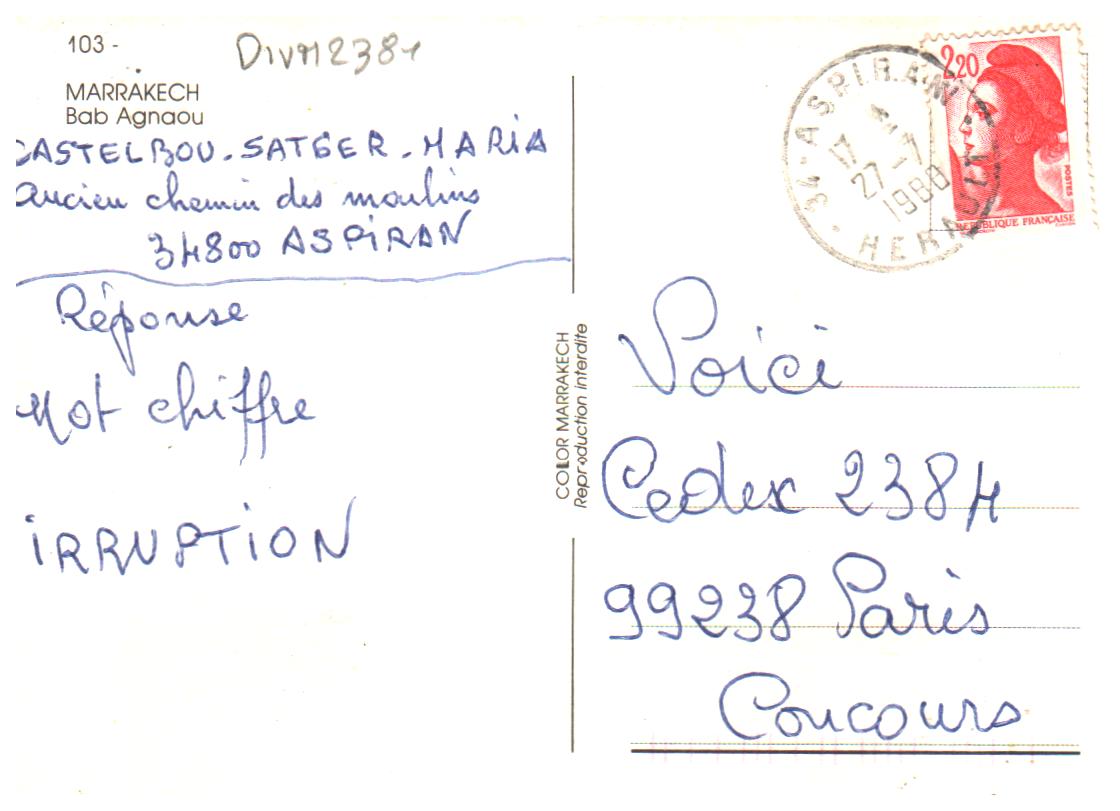 103 -
MARRAKECH
Bab Agnaou
CASTELBOU-SATGER-MARIA
ancien chemin des moulins
34800 ASPIRAN
Réponse
Mot chiffre
IRRUPTION
COLOR MARRAKECH
Reproduction interdite
34-ASPIRAN
17 H
27-7
1988
HERAULT
2,20
POSTES
REPUBLIQUE FRANÇAISE
Voici
Cedex 2384
99238 Paris
Concours